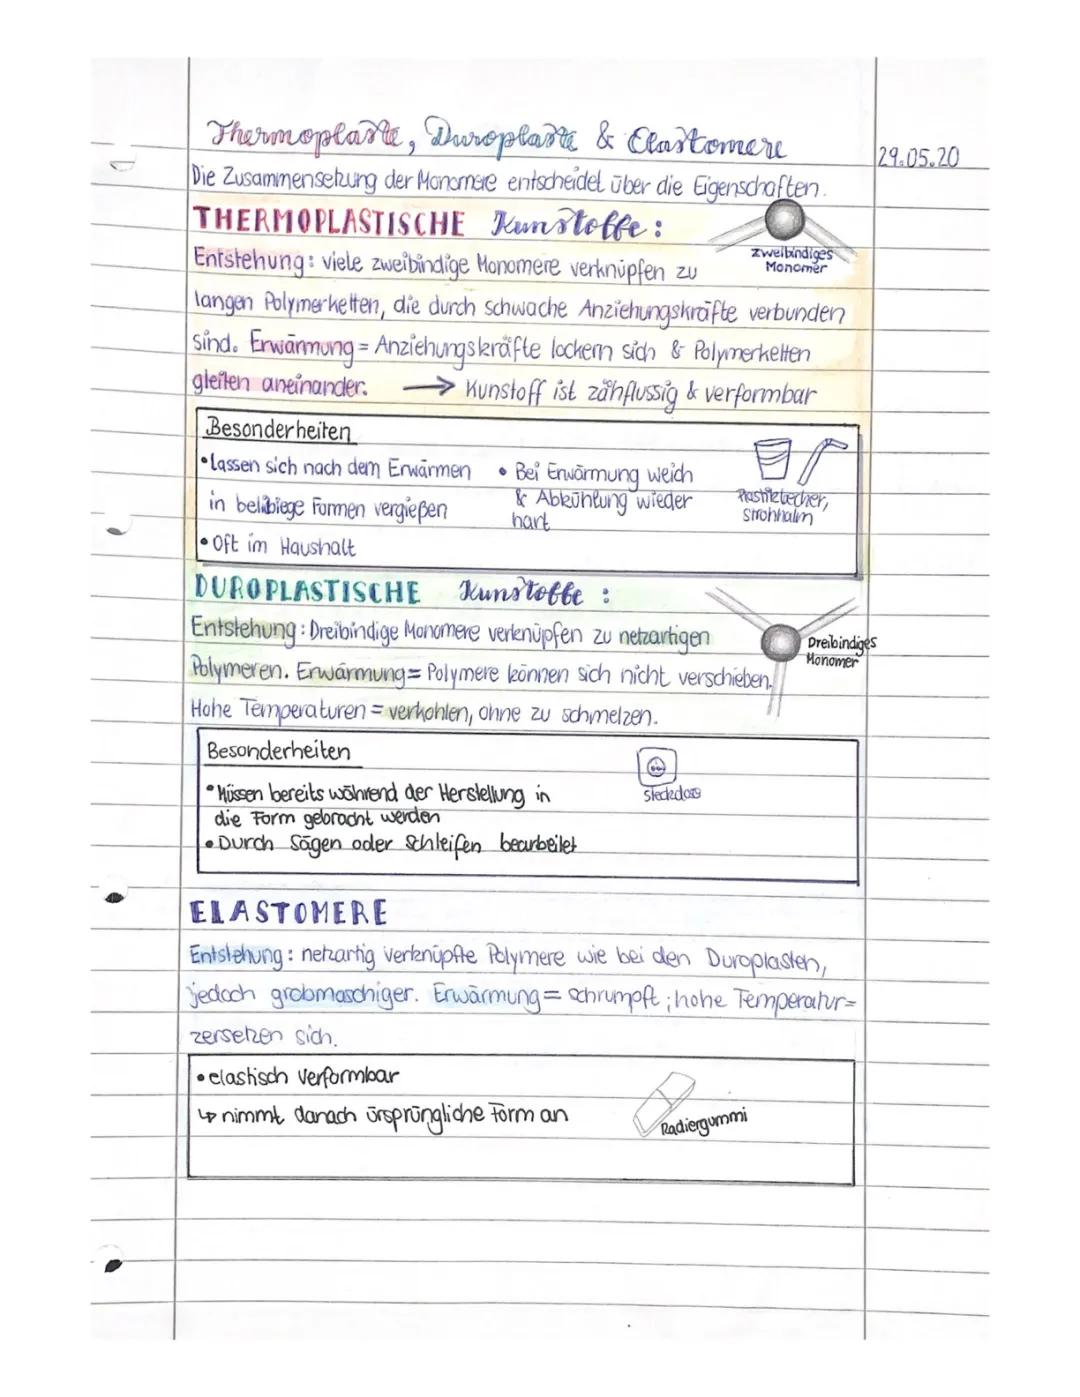 Thermoplaste, Duroplaste & Elastomere
29.05.20
Die Zusammensetzung der Monomere entscheidet über die Eigenschaften.
THERMOPLASTISCHE Kunstoffe:
zweibindiges
Monomer
Entstehung: viele zweibindige Monomere verknüpfen zu
langen Polymerketten, die durch schwache Anziehungskräfte verbunden
sind. Erwärmung = Anziehungskräfte lockern sich & Polymerketten
gleiten aneinander. → Kunstoff ist zähflüssig & verformbar
Besonderheiten
•lassen sich nach dem Erwärmen
in belibiege Formen vergießen
• Oft im Haushalt
• Bei Erwärmung weich
& Abkühlung wieder
hart
Plastikbecher,
Strohhalm
DUROPLASTISCHE Kunstoffe:
Entstehung: Dreibindige Monomere verknüpfen zu netzartigen
Dreibindiges
Monomer
Polymeren. Erwärmung= Polymere können sich nicht verschieben.
Hohe Temperaturen = verkohlen, ohne zu schmelzen.
Besonderheiten
• Müssen bereits während der Herstellung in
die Form gebracht werden
• Durch Sägen oder Schleifen bearbeitet
Steckdose
ELASTOMERE
Entstehung: netzartig verknüpfte Polymere wie bei den Duroplasten,
jedoch grobmaschiger. Erwärmung= schrumpft; hohe Temperatur=
zersetzen sich.
• elastisch verformbar
↳ nimmt danach ürsprüngliche Form an
Radiergummi